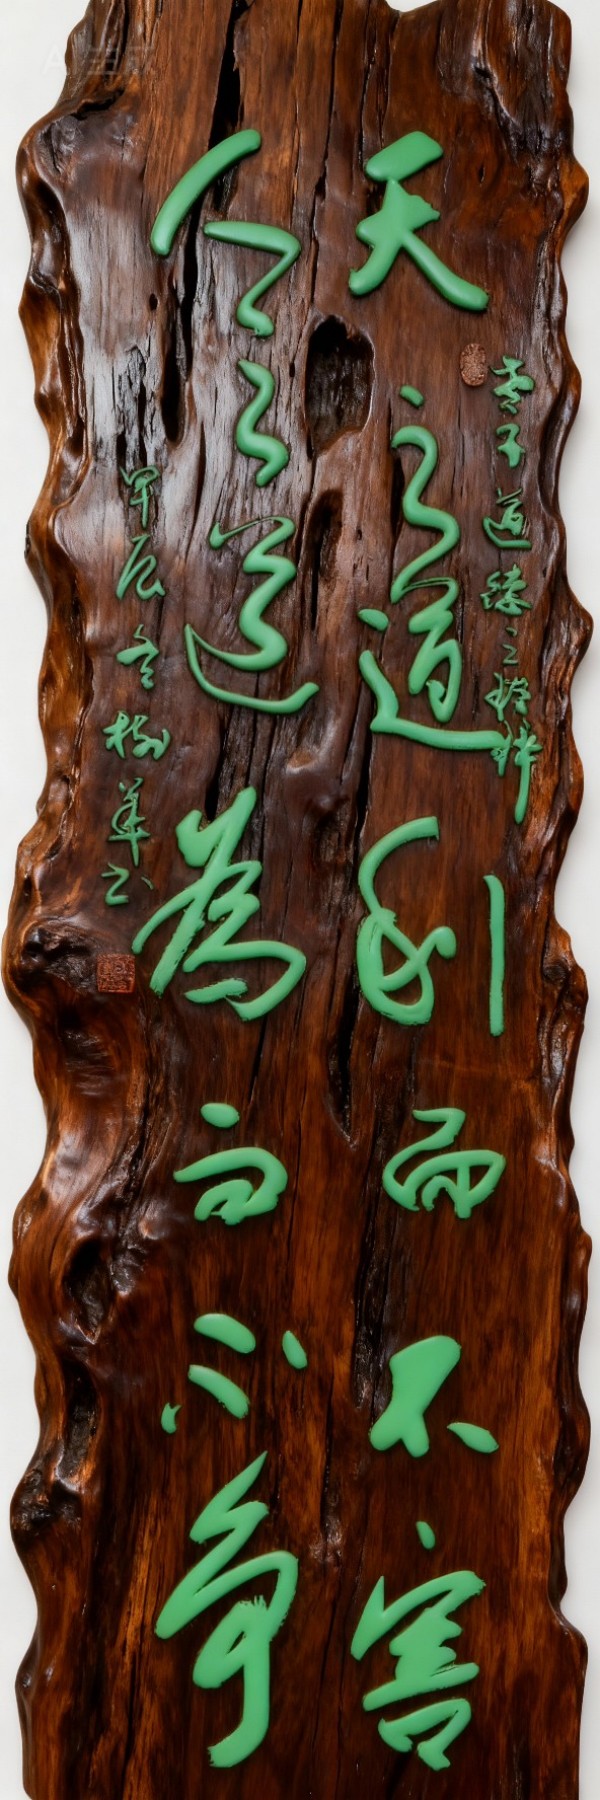 老子道德之精
天之道利而不害
人之道為而不爭
甲辰冬树華书